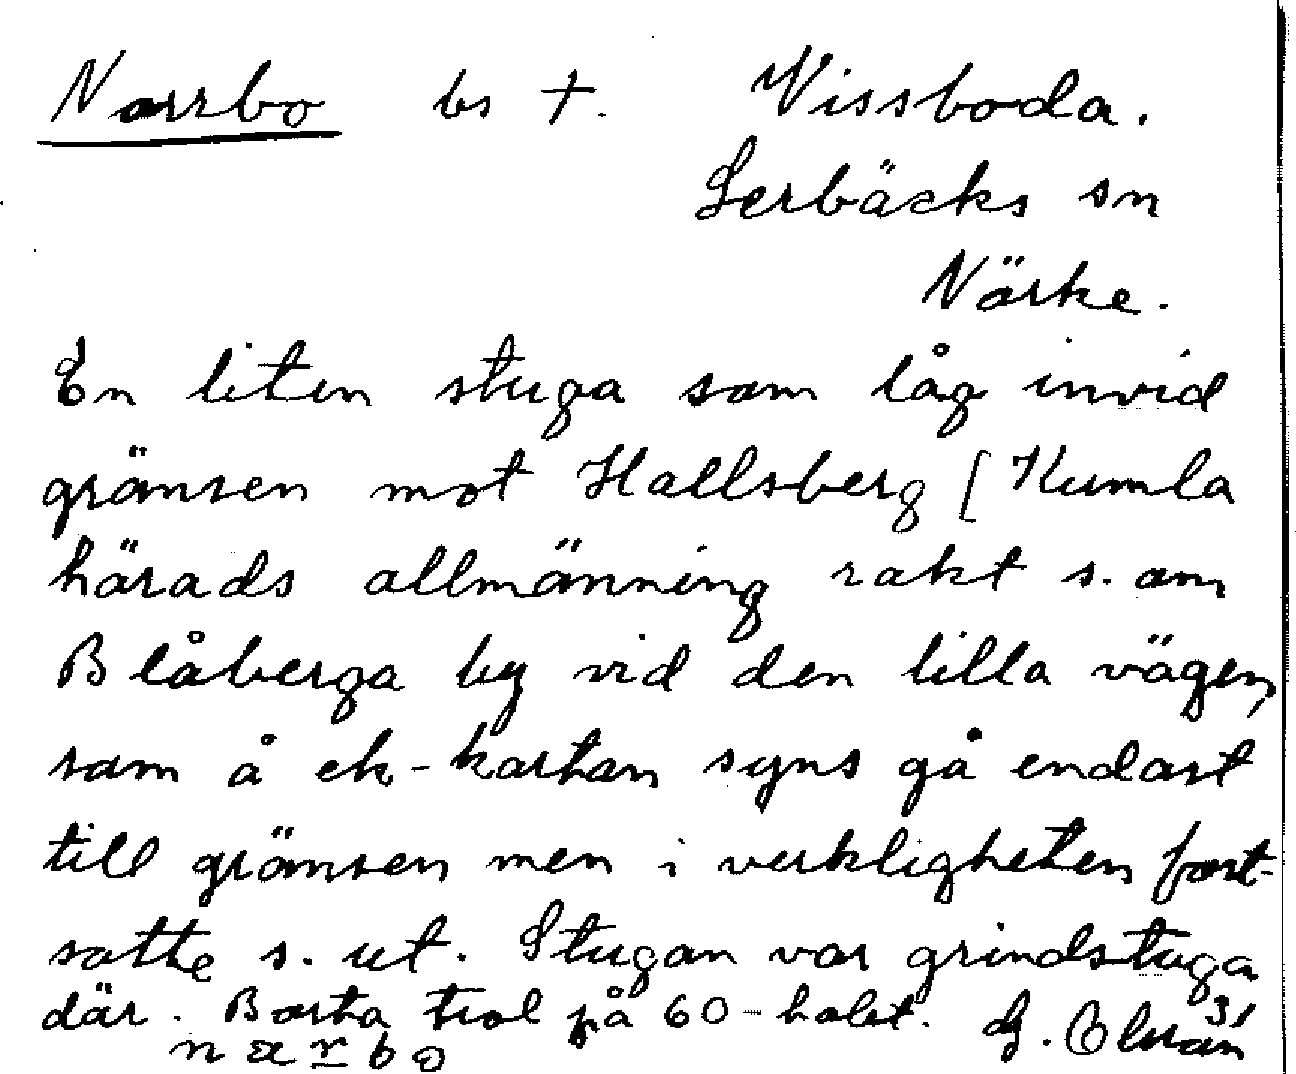 Norrbo bs †. Vissboda.
Lerbäcks sn
Närke.
En liten stuga som låg invid
gränsen mot Hallsberg [Kumla
härads allmänning rakt s. om
Blåberga by vid den lilla vägen,
som å ek-kartan syns gå endast
till gränsen men i verkligheten fort-
satte s. ut. Stugan var grindstuga
där. Borta trol på 60-talet. G. 31